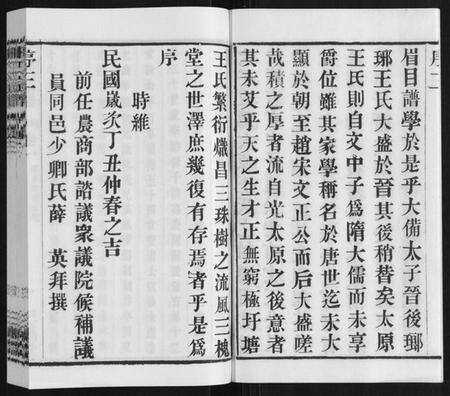 序二
眉目譜學於是乎大備太子晉後瑯
琊王氏大盛於晉其後稍替矣太原
王氏則自文中子爲隋大儒而未享
爵位雖其家學稱名於唐世迄未大
顯於朝至趙宋文正公而后大盛嗟
哉積之厚者流自光太原之後意者
其未艾乎天之生才正無窮極圩塘
王氏繁衍熾昌三珠樹之流風三槐
堂之世澤庶幾復有存焉者乎是爲
序
時維
民國歲次丁丑仲春之吉
前任農商部諮議衆議院候補議
員同邑少卿氏薛 英拜撰
序三